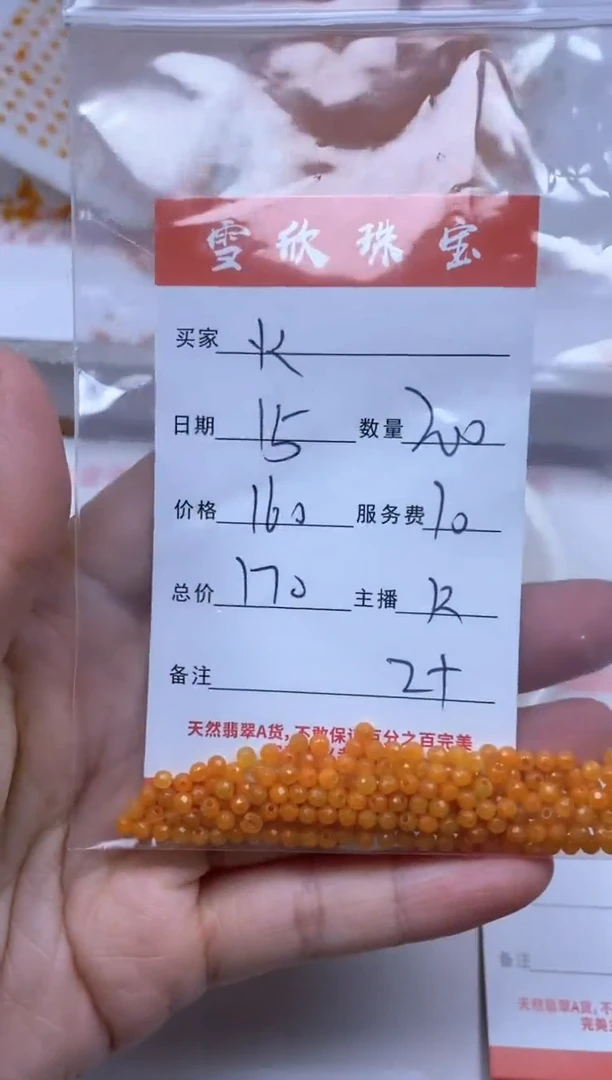 雪欣珠宝
买家
日期 15 数量 200
价格 160 服务费 10
总价 170 主播 R
备注 2+
天然翡翠A货,不敢保证百分之百完美
备注
天然翡翠A货,不
完美